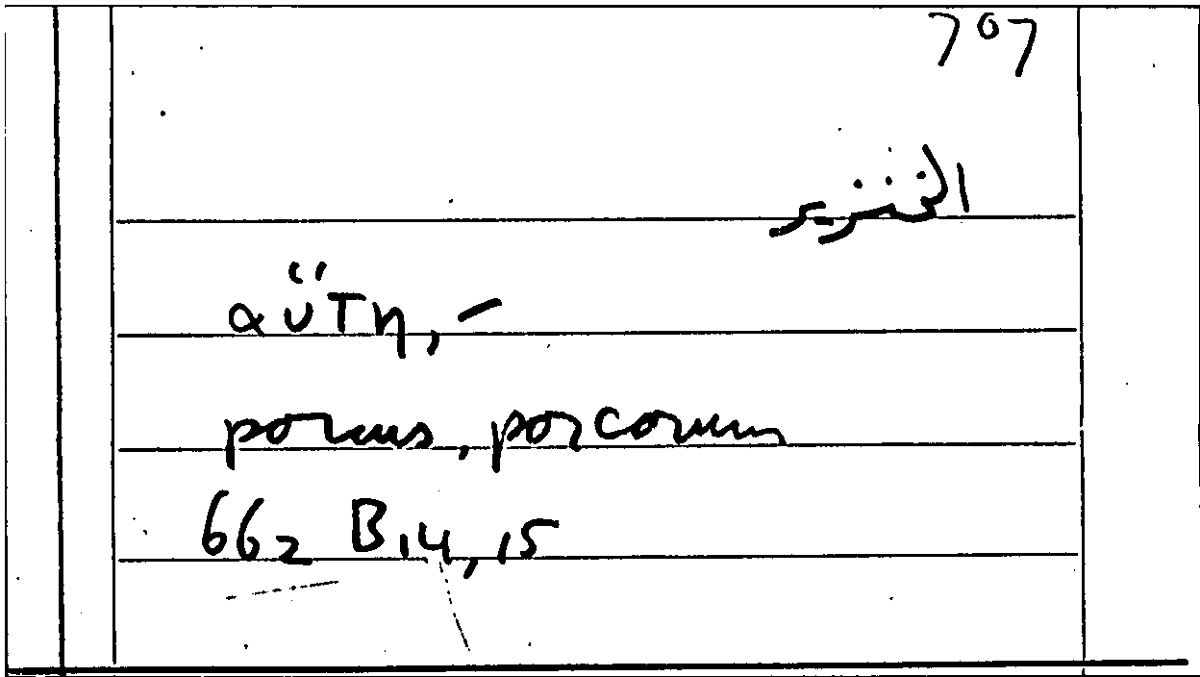 707
الخنزير
αὕτη, –
porcus, porcorum
662 B14, 15